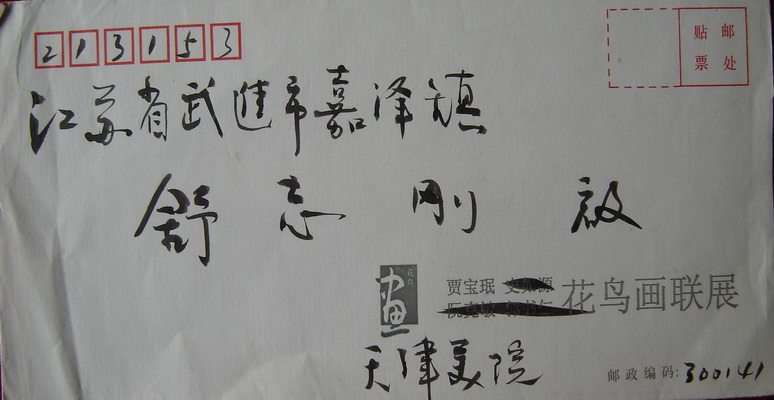 213153
贴邮
票处
江苏省武進市嘉泽镇
舒志刚 啟
花鸟
画
贾宝珉
阮克敏
花鸟画联展
天津美院
邮政编码:300141